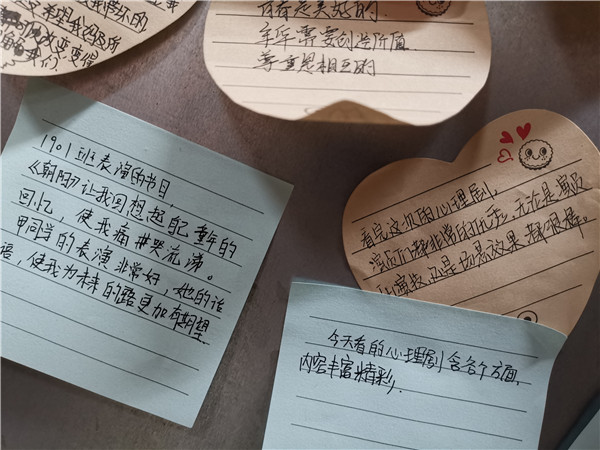 改变变得
我们
是美好的.
年华需要创造价值
尊重是相互的
1901班表演的节目,
《朝阳》让我回想起自己童年的
回忆,使我痛哭流涕。
甲同学的表演非常好,她的话
语,使我为未来的路更加有期望
看完这次的心理剧,
演员们都非常的优秀,无论是演员
演技还是场景效果,都很棒。
今天看的心理剧含各个方面,
内容丰富精彩.